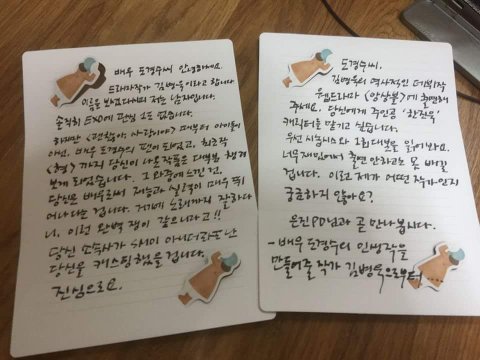 배우 도경수씨 안녕하세요.
드라마작가 김병욱이라고 합니다
이름은 보셨다시피 저는 남자입니다.
솔직히 EXO에 관심 1도 없습니다.
하지만 <괜찮아, 사랑이야> 때부터 아이돌이
아닌, 배우 도경수의 팬이 되었고, 최근작
<형> 까지 당신이 나온 작품은 다 챙겨
보게 되었습니다. 그 와중에 느낀 건,
당신은 배우로써 재능과 실력이 매우 뛰
어나다는 겁니다. 거기에 노래까지 잘하다
니, 이런 완벽 쟁이 같으니라고!!
당신 소속사가 SM이 아니더라도 난
당신을 캐스팅했을 겁니다.
진심으로요.
도경수씨.
김병욱의 역사적인 데뷔작
웹드라마 <앙상블>에 출연해
주세요. 당신에게 주인공
캐릭터를 맡기고 싶습니다.
우선 시놉시스와 1화 대본을 읽어봐요.
너무 재밌어서 출연 안하고는 못 배길
겁니다. 이런 제가 어떤 작가인지
궁금하지 않아요?
은진PD님과 곧 만나 봅시다.
- 배우 도경수의 인생작을
만들어줄 작가 김병욱으로부터...